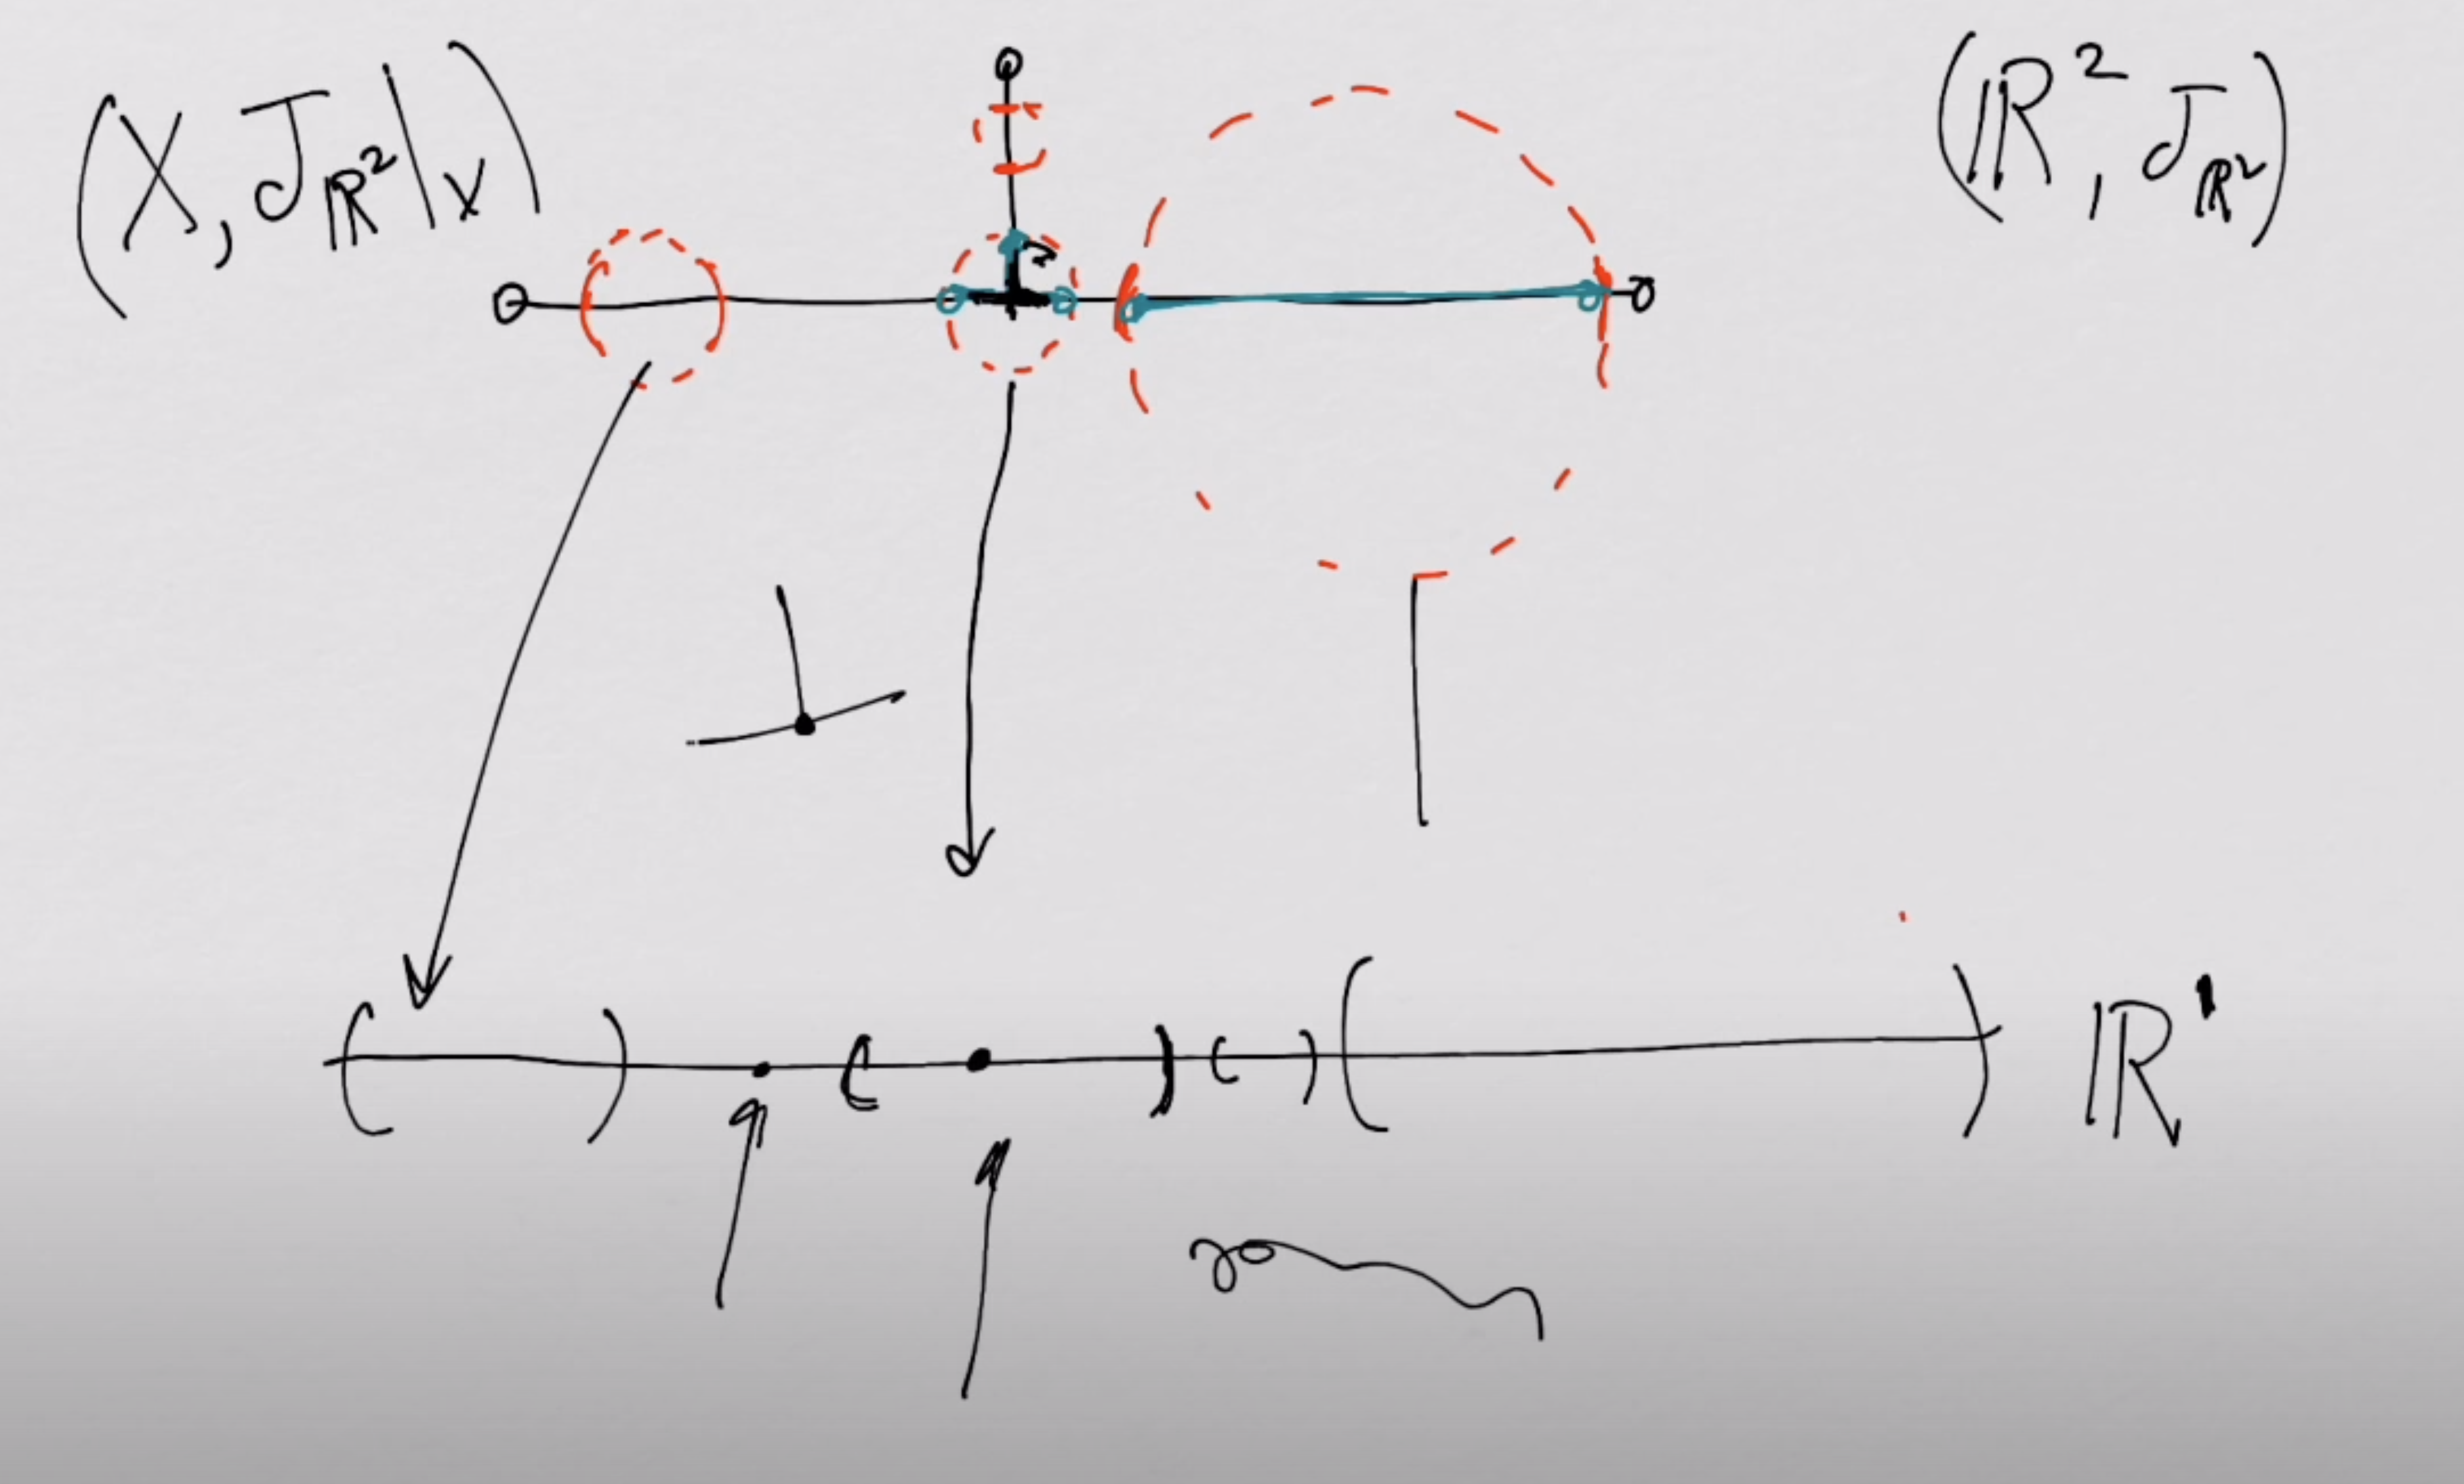 (X, J_ℝ²|_X)
(ℝ², J_ℝ²)
ℝ¹